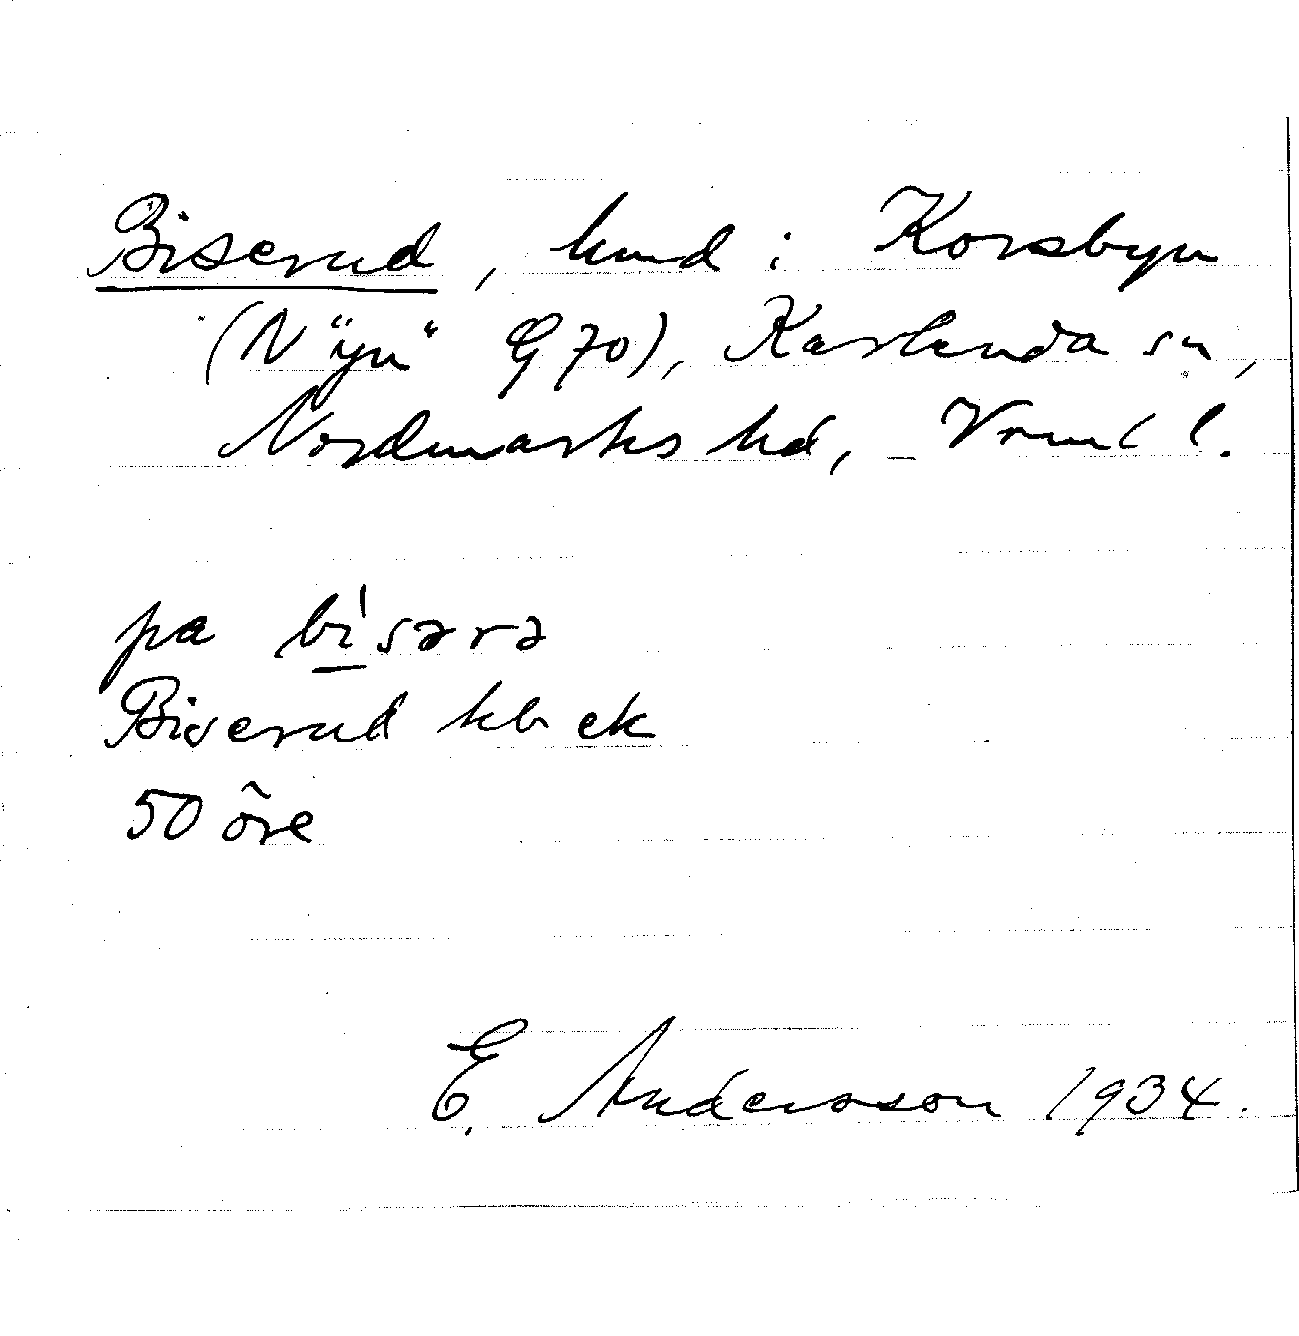 Biserud, hmd i Korsbyn
(N "yn" G 70), Karlanda sn,
Nordmarks hd, Vrml l.
pa bi̱'sərə
Biserud hb ek
50 öre
E. Andersson 1934.